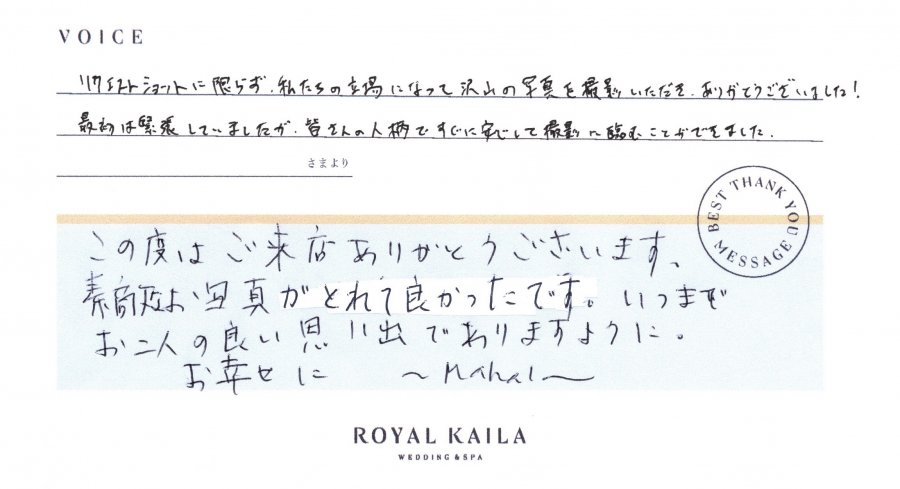 VOICE
リクエストショットに限らず、私たちの立場になって沢山の写真を撮影いただき、ありがとうございました!
最初は緊張していましたが、皆さんの人柄ですぐに安心して撮影に臨むことができました。
さまより
BEST THANK YOU MESSAGE
この度はご来店ありがとうございます、
素敵なお写真がとれて良かったです。いつまで
お二人の良い思い出でありますように。
お幸せに 〜Mahal〜
ROYAL KAILA
WEDDING & SPA